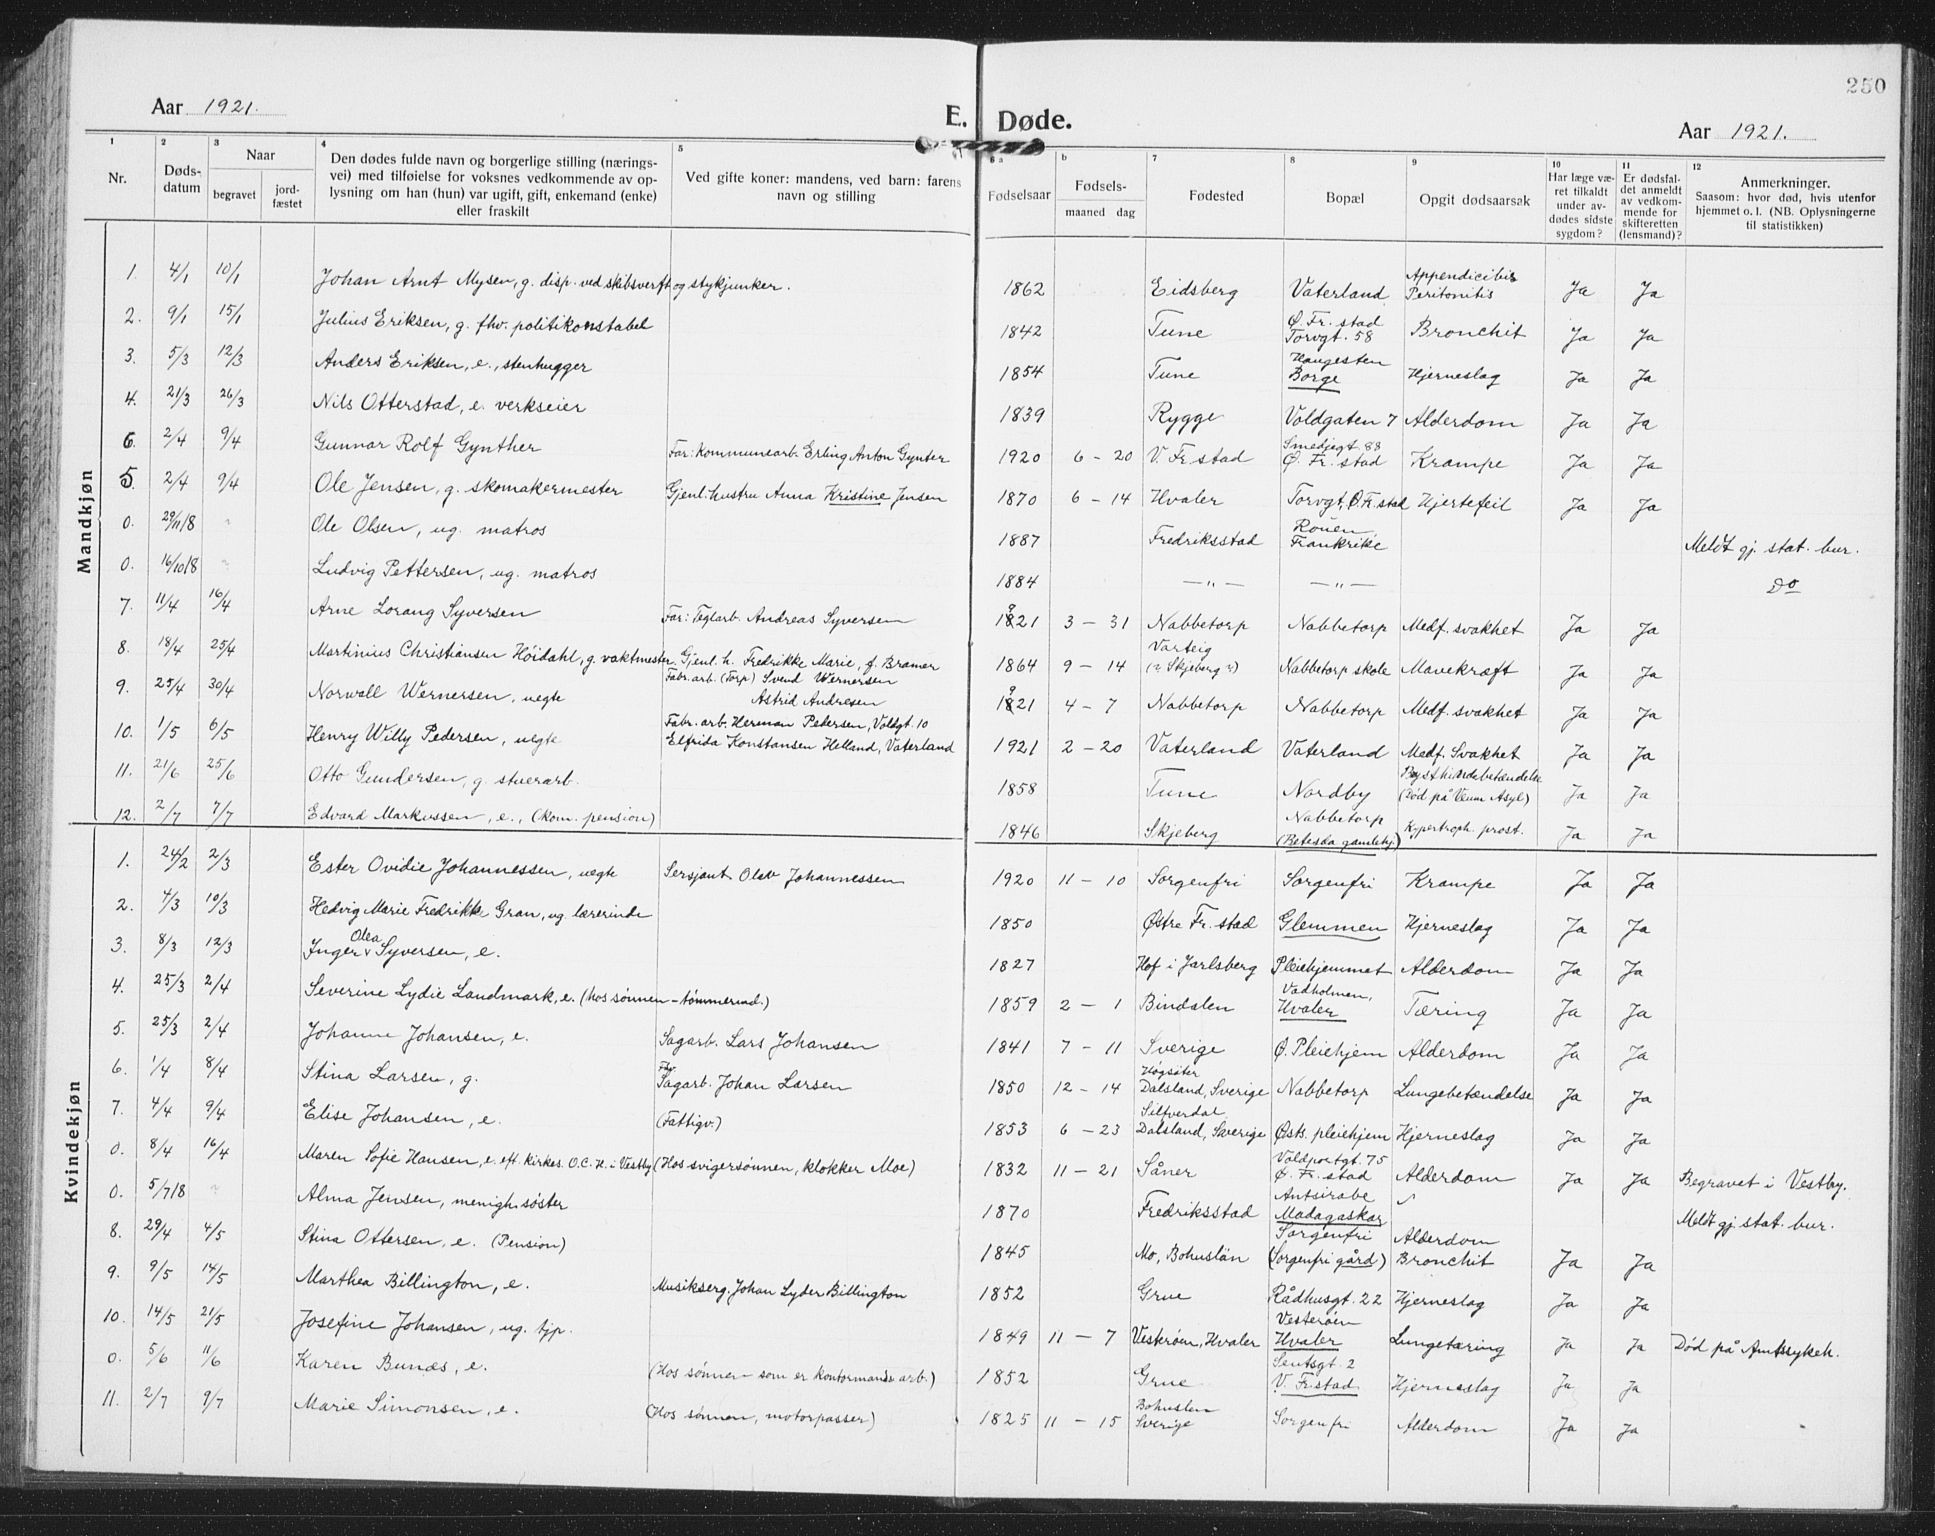 250
Aar 1921.
E. Døde.
Aar 1921.
1 Nr.
2 Døds-datum
3 Naar begravet jord-fæstet
4 Den dødes fulde navn og borgerlige stilling (nærings-
vei) med tilføielse for voksnes vedkommende av op-
lysning om han (hun) var ugift, gift, enkemand (enke)
eller fraskilt
5 Ved gifte koner: mandens, ved barn: farens
navn og stilling
6 a Fødselsaar
b Fødsels- maaned dag
7 Fødested
8 Bopæl
9 Opgit dødsaarsak
10 Har læge væ-
ret tilkaldt
under av-
dødes sidste
sygdom?
11 Er dødsfal-
det anmeldt
av vedkom-
mende for
skifteretten
(lensmand)?
12 Anmerkninger.
Saasom: hvor død, hvis utenfor
hjemmet o. l. (NB. Oplysningerne
til statistikken)
Mandkjøn
1. 4/1 10/1 Johan Arnt Mysen, g. disp. ved skibsverft og stykjunker. 1862 Eidsberg Vaterland Appendicitis Peritonitis Ja Ja
2. 9/1 15/1 Julius Eriksen, g. fhv. politikonstabel 1842 Tune Ø. Fr. stad Torvgt. 58 Bronchit Ja Ja
3. 5/3 12/3 Anders Eriksen, e., stenhugger 1854 Tune Haugesten Borge Hjerneslag Ja Ja
4. 21/3 26/3 Nils Otterstad, e. verkseier 1839 Rygge Voldgaten 7 Alderdom Ja Ja
6. 2/4 9/4 Gunnar Rolf Gynther Far: Kommunearb. Erling Anton Gynter 1920 6 - 20 V. Fr. stad Smedjegt. 88 Ø. Fr. stad Krampe Ja Ja
5. 2/4 9/4 Ole Jensen, g. skomakermester Gjenl. hustru Anna Kristine Jensen 1870 6 - 14 Hvaler Torvgt, Ø. Fr. stad Hjertefeil Ja Ja
0. 29/11 18 " Ole Olsen, ug. matros 1887 Fredriksstad Rouen Frankrike Meldt gj. stat. bur.
0. 16/10 18 " Ludvig Pettersen, ug. matros 1884 — " — — " — Do
7. 11/4 16/4 Arne Lorang Syversen Far: Teglarb. Andreas Syversen 1921 3 - 31 Nabbetorp Nabbetorp Medf. svakhet Ja Ja
8. 18/4 25/4 Martinius Christiansen Höidahl, g. vaktmester Gjenl. h. Fredrikke Marie, f. Bramer 1864 9 - 14 Varteig (n. Skjeberg ?) Nabbetorp skole Mavekræft Ja Ja
9. 25/4 30/4 Norwall Wernersen, uegte Fabr. arb. (Torp) Svend Wernersen Astrid Andresen 1921 4 - 7 Nabbetorp Nabbetorp Medf. svakhet Ja Ja
10. 1/5 6/5 Henry Willy Pedersen, uegte Fabr. arb. Herman Pedersen, Voldgt. 10 Elfrida Konstansen Helland, Vaterland 1921 2 - 20 Vaterland Vaterland Medf. Svakhet Ja Ja
11. 21/6 25/6 Otto Gundersen, g. stuerarb. 1858 Tune Nordby (Død på Veum Asyl) Ja Ja
12. 2/7 7/7 Edvard Markussen, e., (kom. pension) 1846 Skjeberg Nabbetorp (Betesda gamlehj.) Hypertroph. prost. Ja Ja
Kvindekjøn
1. 24/2 2/3 Ester Ovidie Johannessen, uegte Sersjant Olav Johannessen 1920 11 - 10 Sorgenfri Sorgenfri Krampe Ja Ja
2. 4/3 10/3 Hedvig Marie Fredrikke Gran, ug. lærerinde 1850 Østre Fr. stad Glemmen Hjerneslag Ja Ja
3. 8/3 12/3 Inger Olea Syversen, e. 1827 Hof i Jarlsberg Pleiehjemmet Alderdom Ja Ja
4. 25/3 2/4 Severine Lydie Landmark, e. (hos sønnen - tømmerind.) 1859 2 - 1 Bindalen Vadholmen, Hvaler Tæring Ja Ja
5. 25/3 2/4 Johanne Johansen, e. Sagarb. Lars Johansen 1841 7 - 11 Sverige Ø. Pleiehjem Alderdom Ja Ja
6. 1/4 8/4 Stina Larsen, g. Fhv. Sagarb. Johan Larsen 1850 12 - 14 Högsäter Dalsland, Sverige Nabbetorp Lungebetændelse Ja Ja
7. 4/4 9/4 Elise Johansen, e. (Fattigv.) 1853 6 - 23 Silfverdal Dalsland, Sverige Østs. pleiehjem Hjerneslag Ja Ja
0. 8/4 16/4 Maren Sofie Hansen, e. eft. kirkes. O.C.H. i Vestby (Hos svigersønnen, klokker Moe) 1832 11 - 21 Såner Voldportgt. 75 Ø. Fr. stad Alderdom Ja Ja Begravet i Vestby.
0. 5/7 18 " Alma Jensen, menigh. søster 1870 Fredriksstad Antsirabe Madagaskar " Meldt gj. stat. bur.
8. 29/4 4/5 Stina Ottersen, e. (Pension) 1845 Mo, Bohuslän Sorgenfri (Sorgenfri gård) Alderdom Bronchit Ja Ja
9. 9/5 14/5 Marthea Billington, e. Musikserg. Johan Lyder Billington 1852 Grue Rådhusgt. 22 Hjerneslag Ja Ja
10. 14/5 21/5 Josefine Johansen, ug. tjp. 1849 11 - 7 Vesterøen, Hvaler Vesterøen Hvaler Lungetæring Ja Ja Død på Amtssykeh.
0. 5/6 11/6 Karen Bunæs, e. (Hos sønnen - som er kontormands arb.) 1852 Grue V. Fr. stad Hjerneslag Ja Ja
11. 2/7 9/7 Marie Simonsen, e. (Hos sønnen, motorpasser) 1825 11 - 15 Bohuslen Sverige Sorgenfri Alderdom Ja Ja